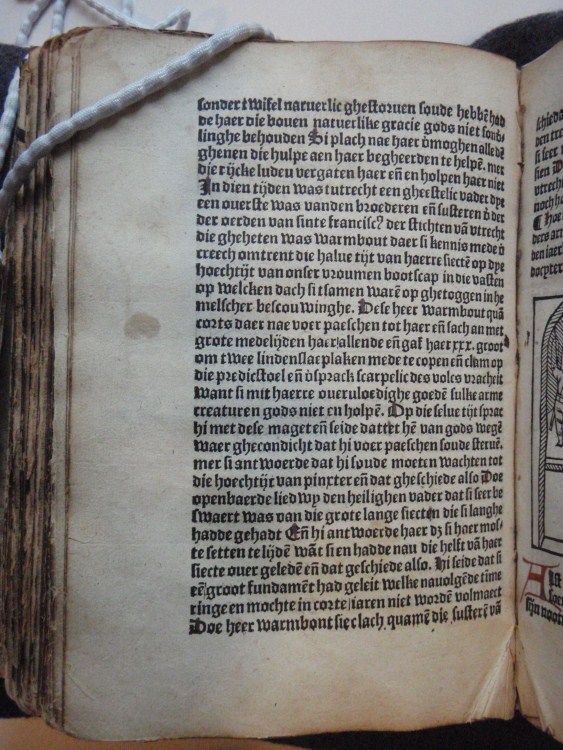 sondert wifel natuerlic ghestoruen soude hebbē had
de haer die bouen natuerlike gracie gods niet sond-
linghe behouden Si plach nae haer v̄moghen alle dē
ghenen die hulpe aen haer begheerden te helpē. mer
die rijcke luden vergaten haer eñ en holpen haer niet
In dien tijden was tutrecht een gheestelic vader dye
een ouerste was vanden broederen eñ susteren v̄ der
der oerden van sinte francisc? der stichten vā vtrecht
die gheheten was warmbout daer si kennis mede v̄
creech omtrent die halue tijt van haerre siectē op dye
hoechtijt van onser vrouwen bootscap in die vasten
op welcken dach si tsamen warē op ghetoggen in he
melscher bescouwinghe. Dese heer warmbout quā
corts daer nae voer paeschen tot haer eñ sach an met
grote medelijden haer allende eñ gaf haer xxx. groot
om twee lindenslaeplaken mede te copen eñ clam op
die predicstoel eñ v̄sprack scarpelic des volcs vracheit
want si mit haerre oueruloedighe goedē sulke arme
creaturen gods niet en holpē. Op die selue tijt sprac
hi met dese maget eñ seide dattet hē van gods wegē
waer ghecondicht dat hi voer paeschen soude steruē.
mer si antwoerde dat hi soude moeten wachten tot
die hoechtijt van pinxter eñ dat gheschiede also Doe
openbaerde liedwy den heilighen vader dat si seer be
swaert was van die grote lange siecten die si langhe
hadde gehadt Eñ hi antwoerde haer dz si haer mos-
te setten te lijdē wāt si en hadde nau die helft vā haer
siecte ouer geledē eñ dat geschiede also. Hi seide dat si
eē groot fundamēt had geleit welke nauolgēde time
ringe en mochte in corte iaren niet wordē volmaect
Doe heer warmbont siec lach, quamē die susterē vā